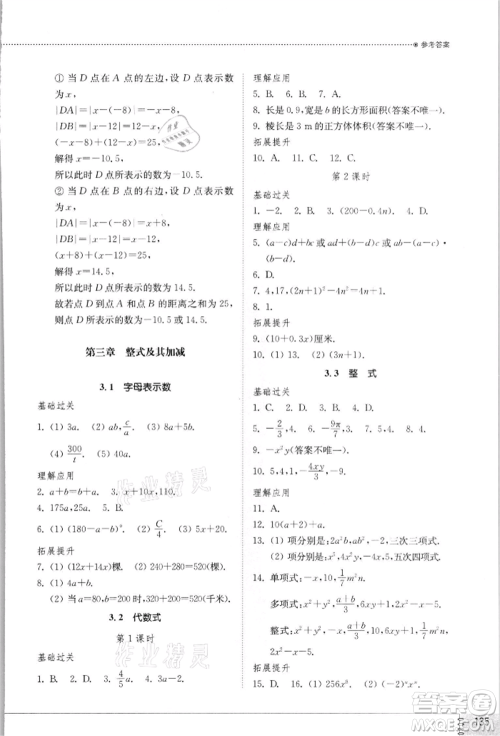 参考答案
① 当 D 点在 A 点的左边,设 D 点表示数
为 x,
|DA|=|x-(-8)|=-x-8,
|DB|=|x-12|=12-x,
(-x-8)+(12-x)=25,
解得 x=-10.5,
所以此时 D 点所表示的数为-10.5.
② 当 D 点在 B 点的右边,设 D 点表示数
为 x,
|DA|=|x-(-8)|=x+8,
|DB|=|x-12|=x-12,
(x+8)+(x-12)=25,
解得 x=14.5,
所以此时 D 点所表示的数为 14.5.
故若点 D 到点 A 和点 B 的距离之和为 25,
则点 D 所表示的数是-10.5 或 14.5.
第三章 整式及其加减
3.1 字母表示数
基础过关
1. (1) 3a. (2) ab, c/a. (3) 8a+5b.
(4) 300/t. (5) 40a.
理解应用
2. a+b=b+a.
4. 175a, 25a.
6. (1) (180-α-x)°. (2) (C/4)².
拓展提升
7. (1) (12x+14x)棵. (2) (12a+14b)棵.
8. (1) 4a+b.
(2) 当 a=80,b=200 时,4a+b=520(千米).
3.2 代数式
第 1 课时
基础过关
1. B. 2. D. 3. 4/5 a. 4. (2a+3b).
理解应用
5. B. 6. B. 7. C.
8. 长是 0.9,宽是 b 的长方形面积(答案不唯一).
9. 棱长是 3 m 的正方体体积(答案不唯一).
拓展提升
10. A. 11. C. 12. C.
第 2 课时
基础过关
1. -2. 2. D. 3. (200-0.4n). 4. D.
理解应用
5. (a-c)d+bc 或 ad+c(b-d) 或 ab-(a-c)
(b-d).
7. 4, 4, (2n+1)²-1=4n²+4n.
8. 1.
拓展提升
9. (10+0.3x)厘米.
10. (1) 13. (2) (3n+1).
3.3 整 式
基础过关
5. -2/3, 4. 6. -9π/7, 3.
9. -x²y(答案不唯一).
理解应用
11. A.
12. 10(a+2).
13. (1) 项分别是:2a², -ab², -5, 三次三项式.
14. 单项式:-x, 10, 1/7 m²n.
多项式:a+b/3, 6xy+1, 2x²-x-5.
整式:-x, a+b/3, 10, 6xy+1, 1/7 m²n, 2x²-x-5.
拓展提升
作业精灵
作业精灵
答案圈
135